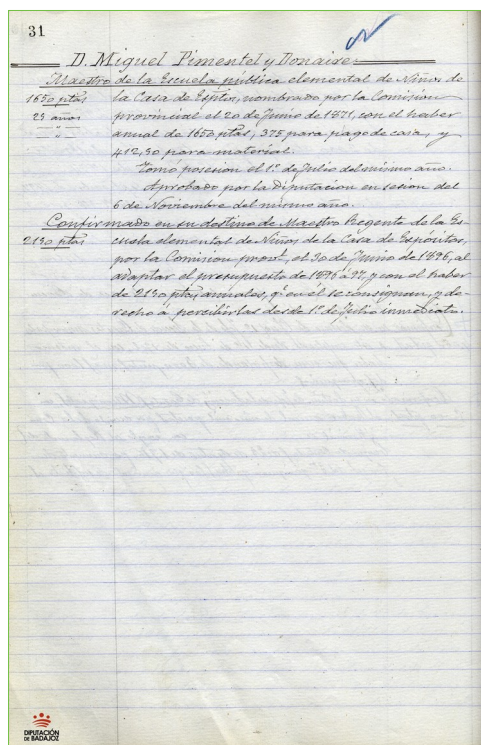 31
D. Miguel Pimentel y Donaire.
Maestro de la Escuela pública elemental de Niños de
1650 ptas la Casa de Espitos, nombrado por la Comision
25 años provincial el 20 de Junio de 1871, con el haber
anual de 1650 ptas, 375 para pago de casa, y
412,50 para material.
Tomó posesion el 1º de Julio del mismo año.
Aprobado por la Diputacion en sesion del
6 de Noviembre del mismo año.
Confirmado en su destino de Maestro Regente de la Es
2150 ptas cuela elemental de Niños, de la Casa de Expósitos,
por la Comision provl, el 30 de Junio de 1896, al
adaptar el presupuesto de 1896 á 97, y con el haber
de 2150 ptas, anuales, q.e en él se consignan, y de-
recho a percibirlas desde 1º de Julio inmediato.
DIPUTACIÓN
DE BADAJOZ